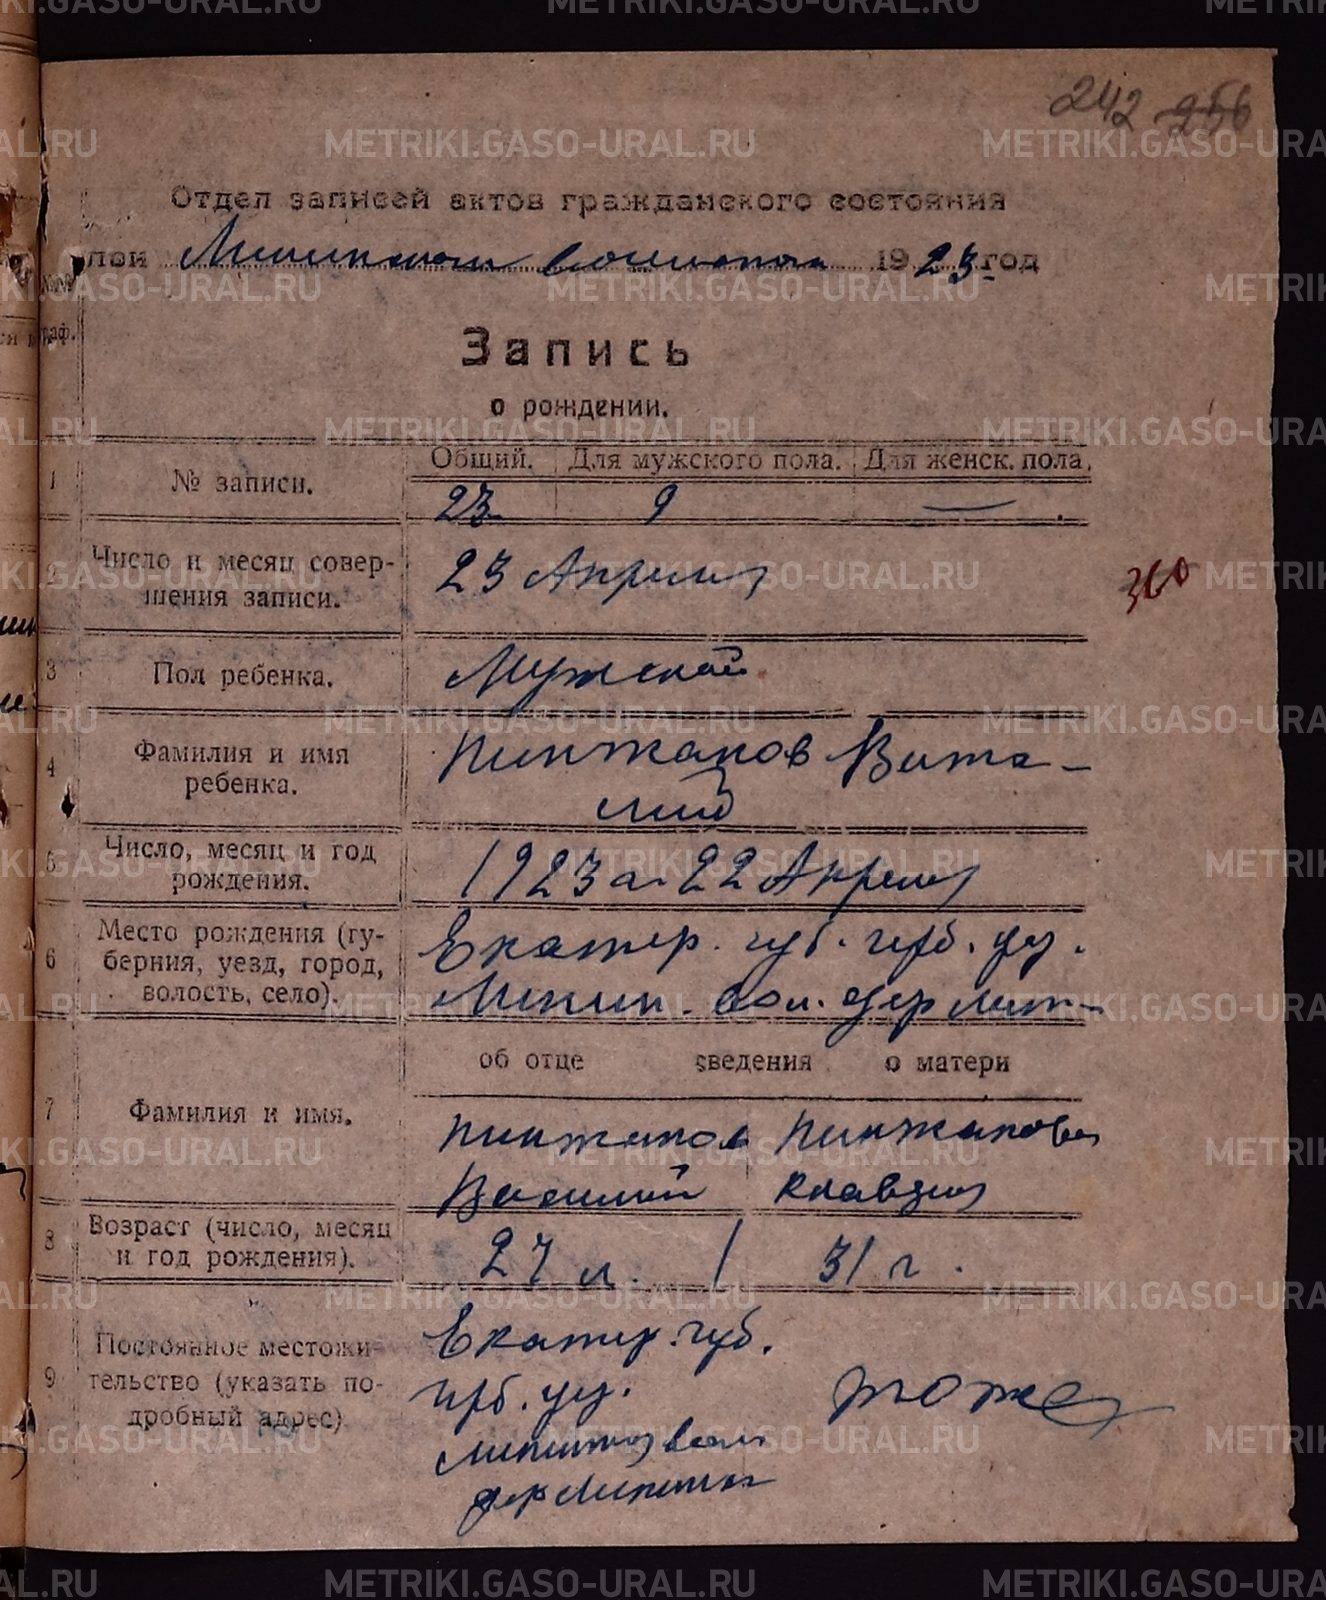 242 256
Отдел записей актов гражданского состояния
при волисполкоме 1923 год
Запись
о рождении.
Общий. Для мужского пола. Для женск. пола.
1 № записи. 23 9 —
2 Число и месяц совер-
шения записи. 23 Апреля
360
3 Пол ребенка. Мужской
4 Фамилия и имя
ребенка. Пинжаков Вита-
лий
5 Число, месяц и год
рождения. 1923 г. 22 Апреля
6 Место рождения (гу-
берния, уезд, город,
волость, село). Екатер. губ. ирб. уез.
вол. дер
об отце сведения о матери
7 Фамилия и имя. Пинжаков Пинжакова
Василий Клавдия
8 Возраст (число, месяц
и год рождения). 27 л. 31 г.
9 Постоянное местожи-
тельство (указать по-
дробный адрес) Екатер. губ.
ирб. уез.
дер
тоже
METRIKI.GASO-URAL.RU